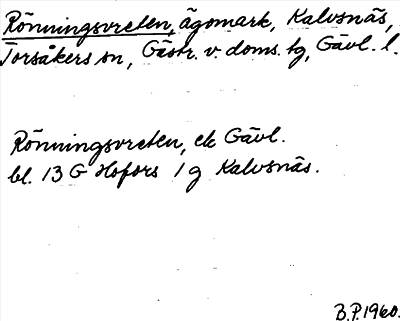 Rönningsvreten, ägomark, Kalvsnäs,
Torsåkers sn, Gästr. v. doms. tg, Gävl. l.
Rönningsvreten, ek Gävl.
bl. 13 G Hofors 1 g Kalvsnäs.
B.P. 1960.